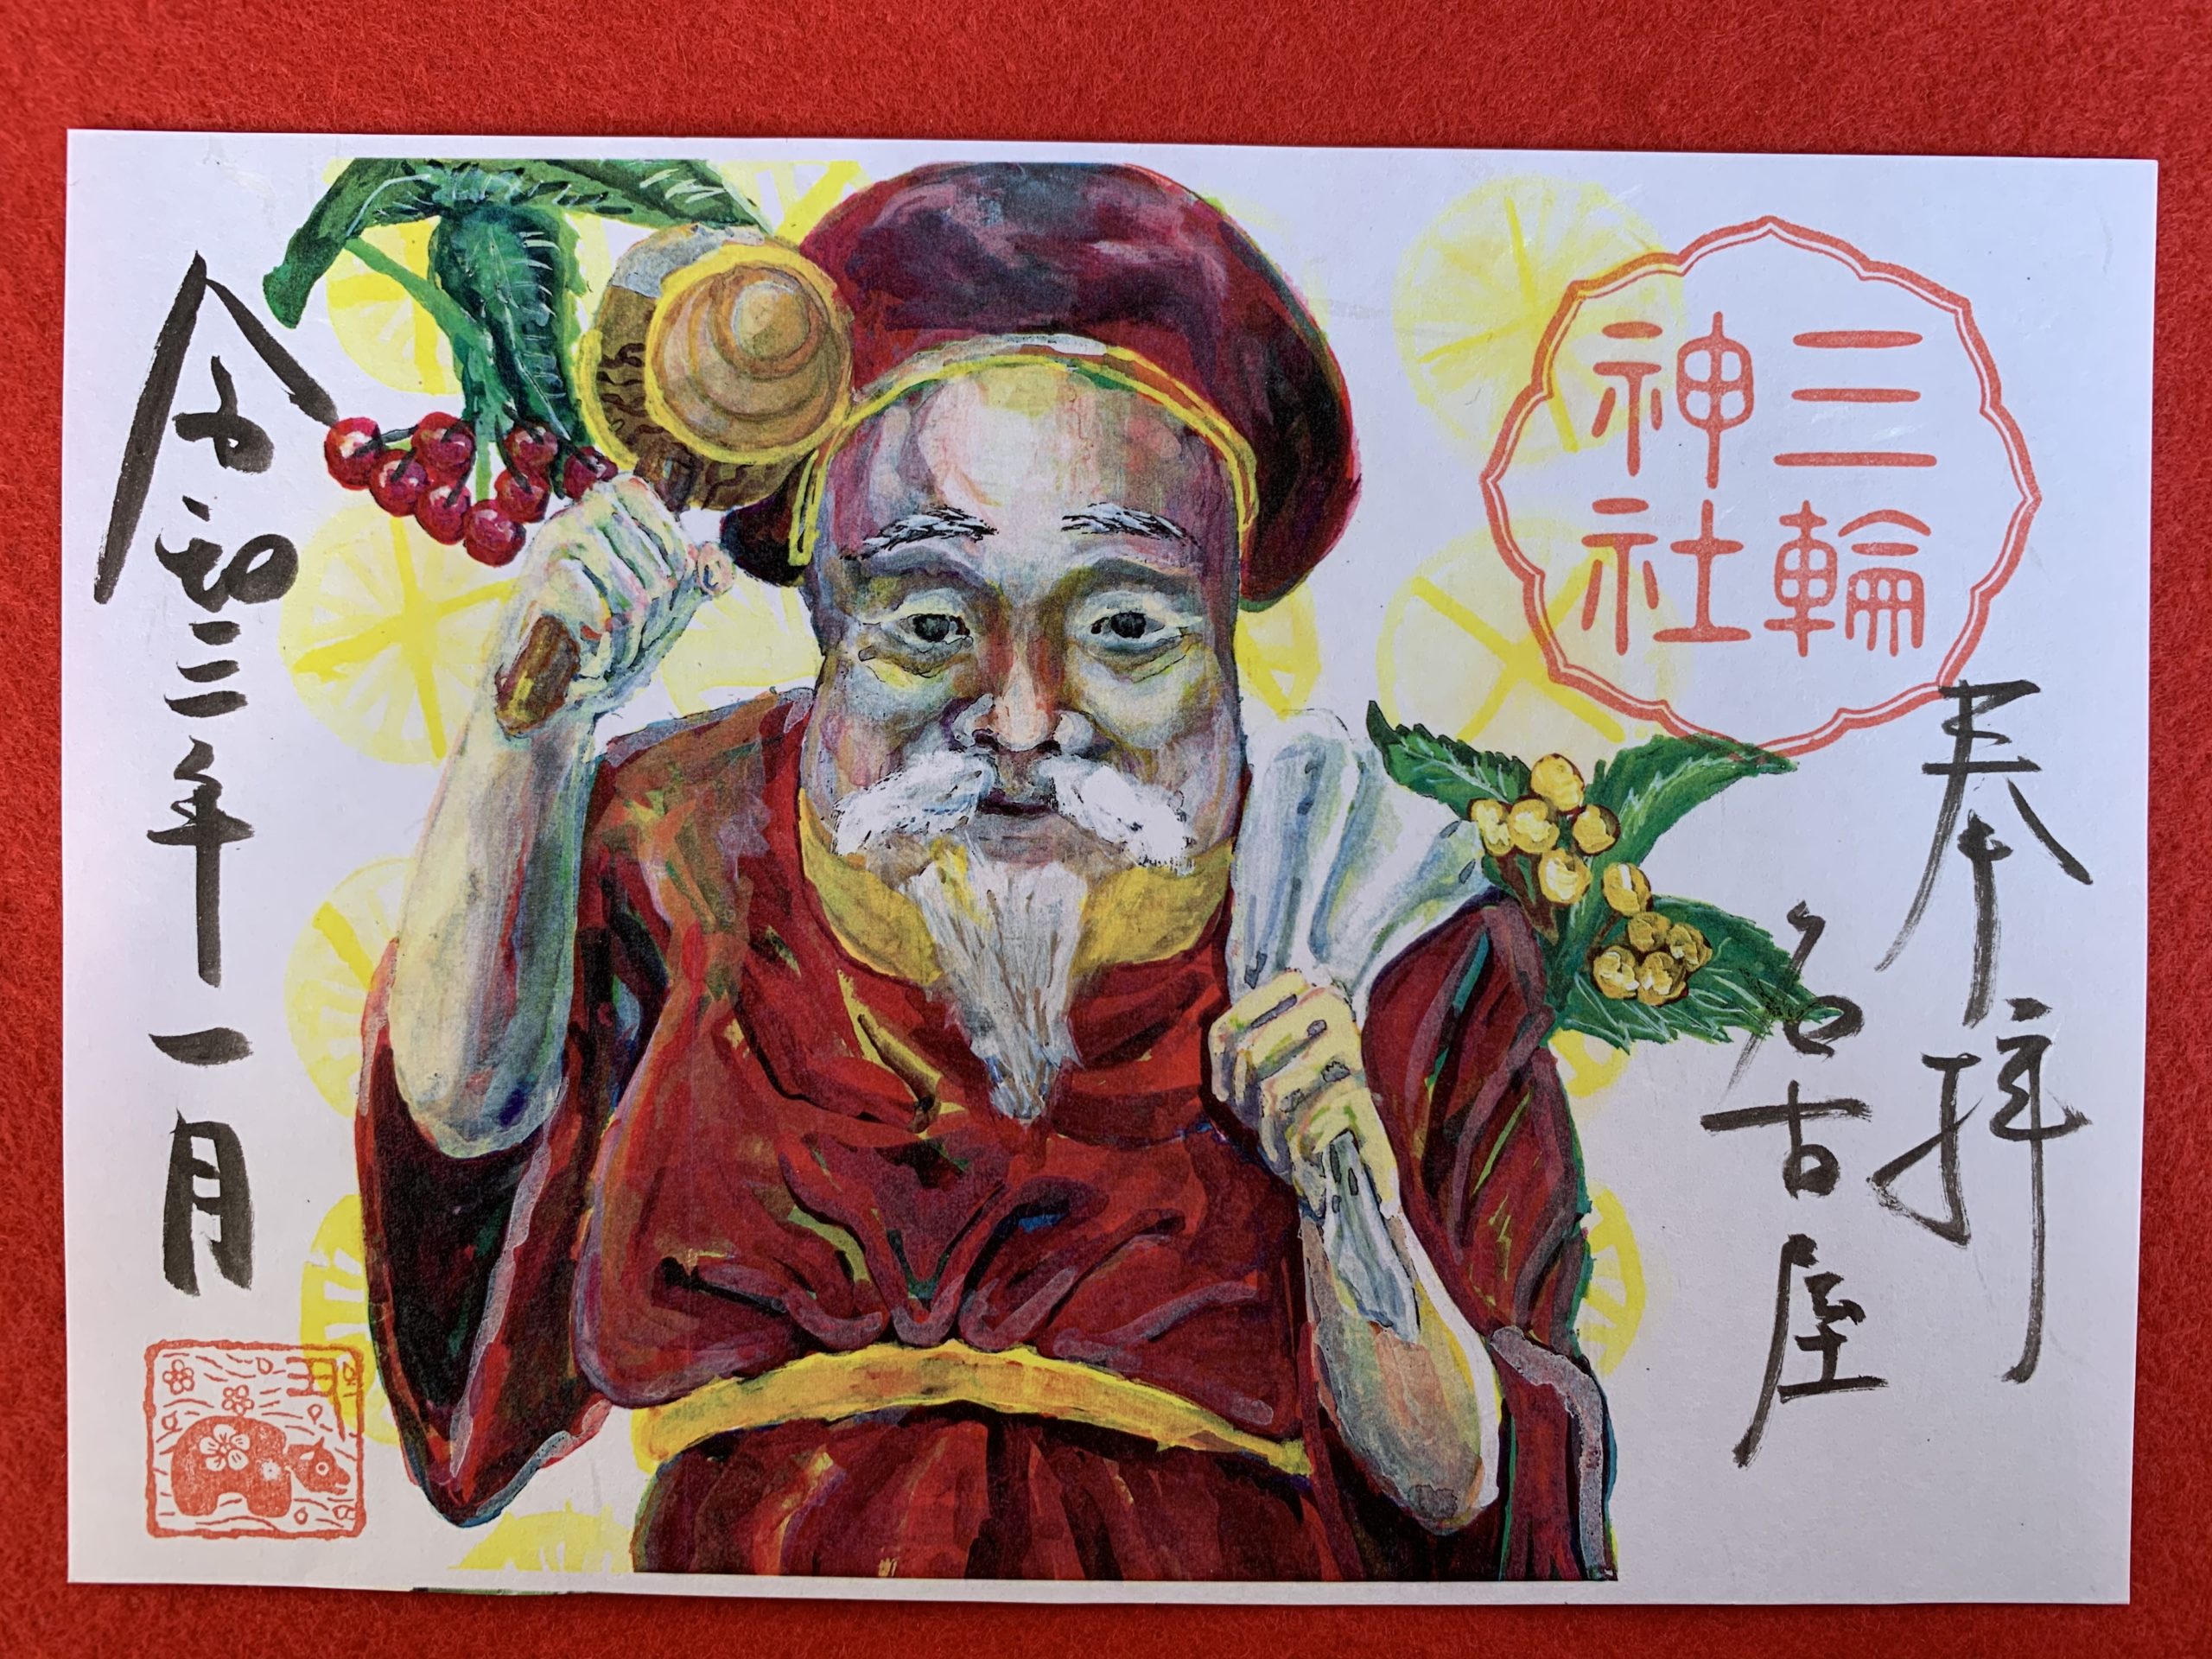 三輪
神社
奉拝
名古屋
令和三年一月
丑